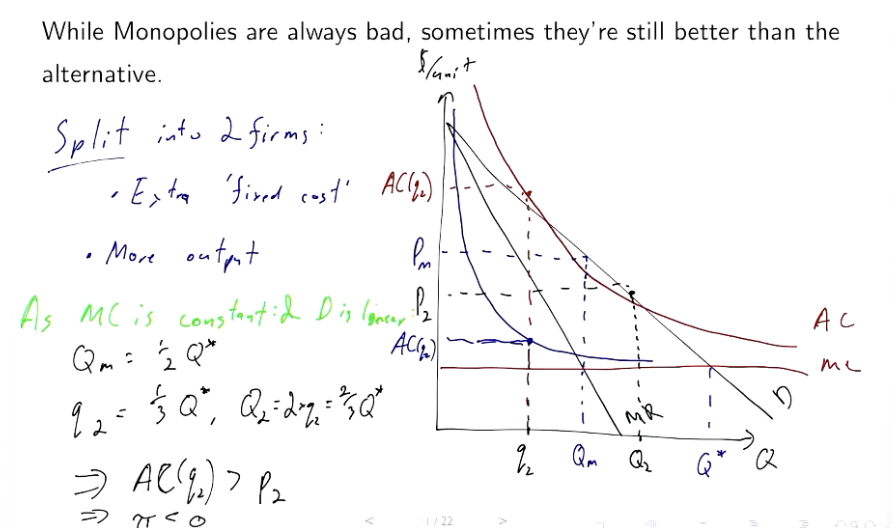 While Monopolies are always bad, sometimes they're still better than the
alternative.
$/unit
Split into 2 firms:
• Extra 'fixed cost'
• More output
As MC is constant & D is linear:
Qm = 1/2 Q*
q2 = 1/3 Q*, Q2 = 2×q2 = 2/3 Q*
⇒ AC(q2) > P2
⇒ π < 0
AC(q2)
Pm
P2
AC(q2)
AC
MC
D
MR
q2 Qm Q2 Q* Q
1 / 22